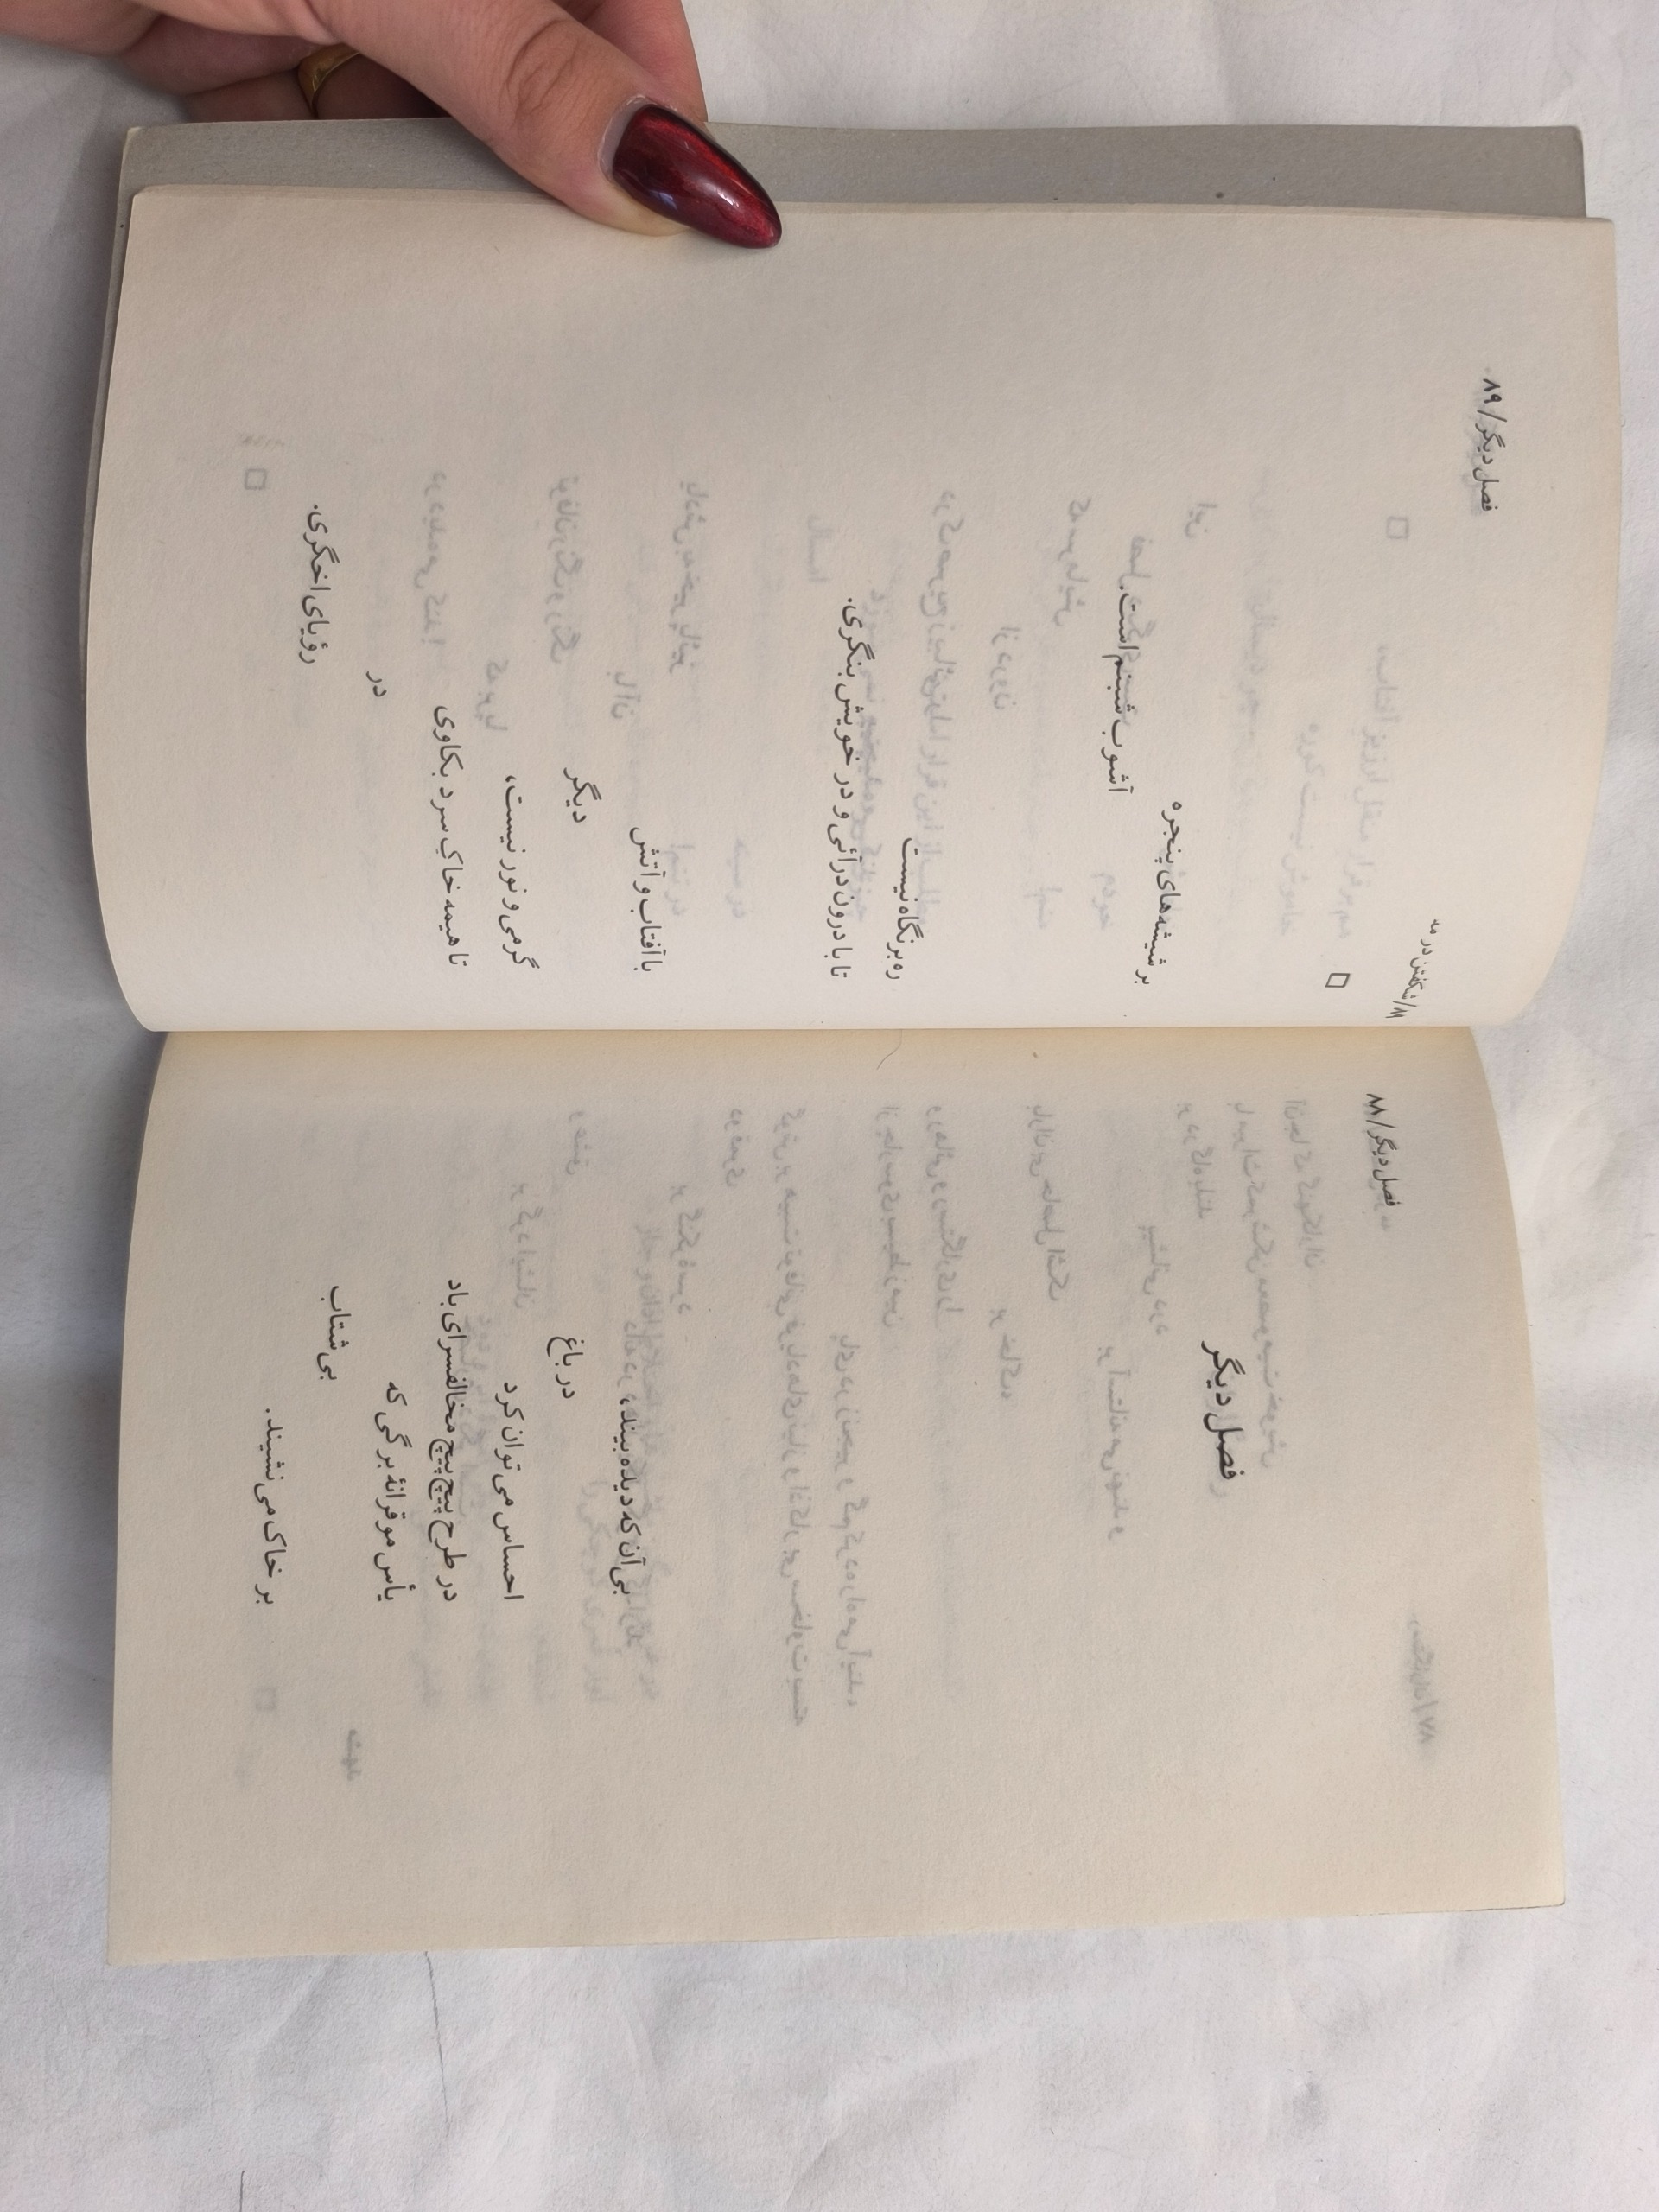 فصل دیگر/۸۸
فصل دیگر
بی‌آن که دیده بیند،
در باغ
احساس می‌توان کرد
در طرح پیچ‌پیچ مخالفسرای باد
یأس موقرانهٔ برگی که
بی‌شتاب
بر خاک می‌نشیند.
فصل دیگر/۸۹
شکفتن در مه
□
بر شیشه‌های پنجره
آشوب شبنم است.
ره بر نگاه نیست
تا با درون درآئی و در خویش بنگری.
با آفتاب و آتش
دیگر
گرمی و نور نیست،
تا هیمه خاک سرد بکاوی
در
رؤیای اخگری.